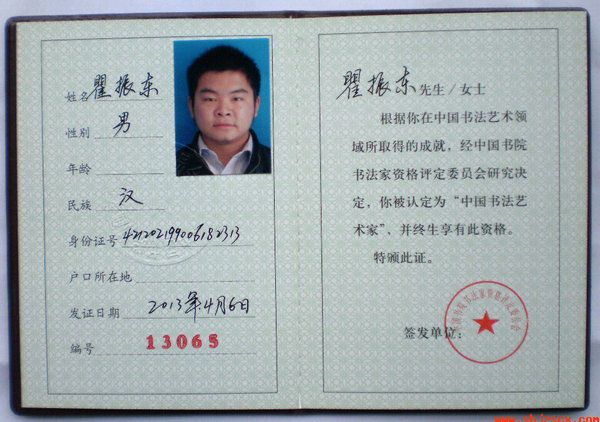 姓名 翟振东
性别 男
年龄
民族 汉
身份证号
户口所在地
发证日期 2013年4月6日
编号 13065
翟振东 先生/女士
根据你在中国书法艺术领
域所取得的成就，经中国书院
书法家资格评定委员会研究决
定，你被认定为“中国书法艺
术家”，并终生享有此资格。
特颁此证。
签发单位：